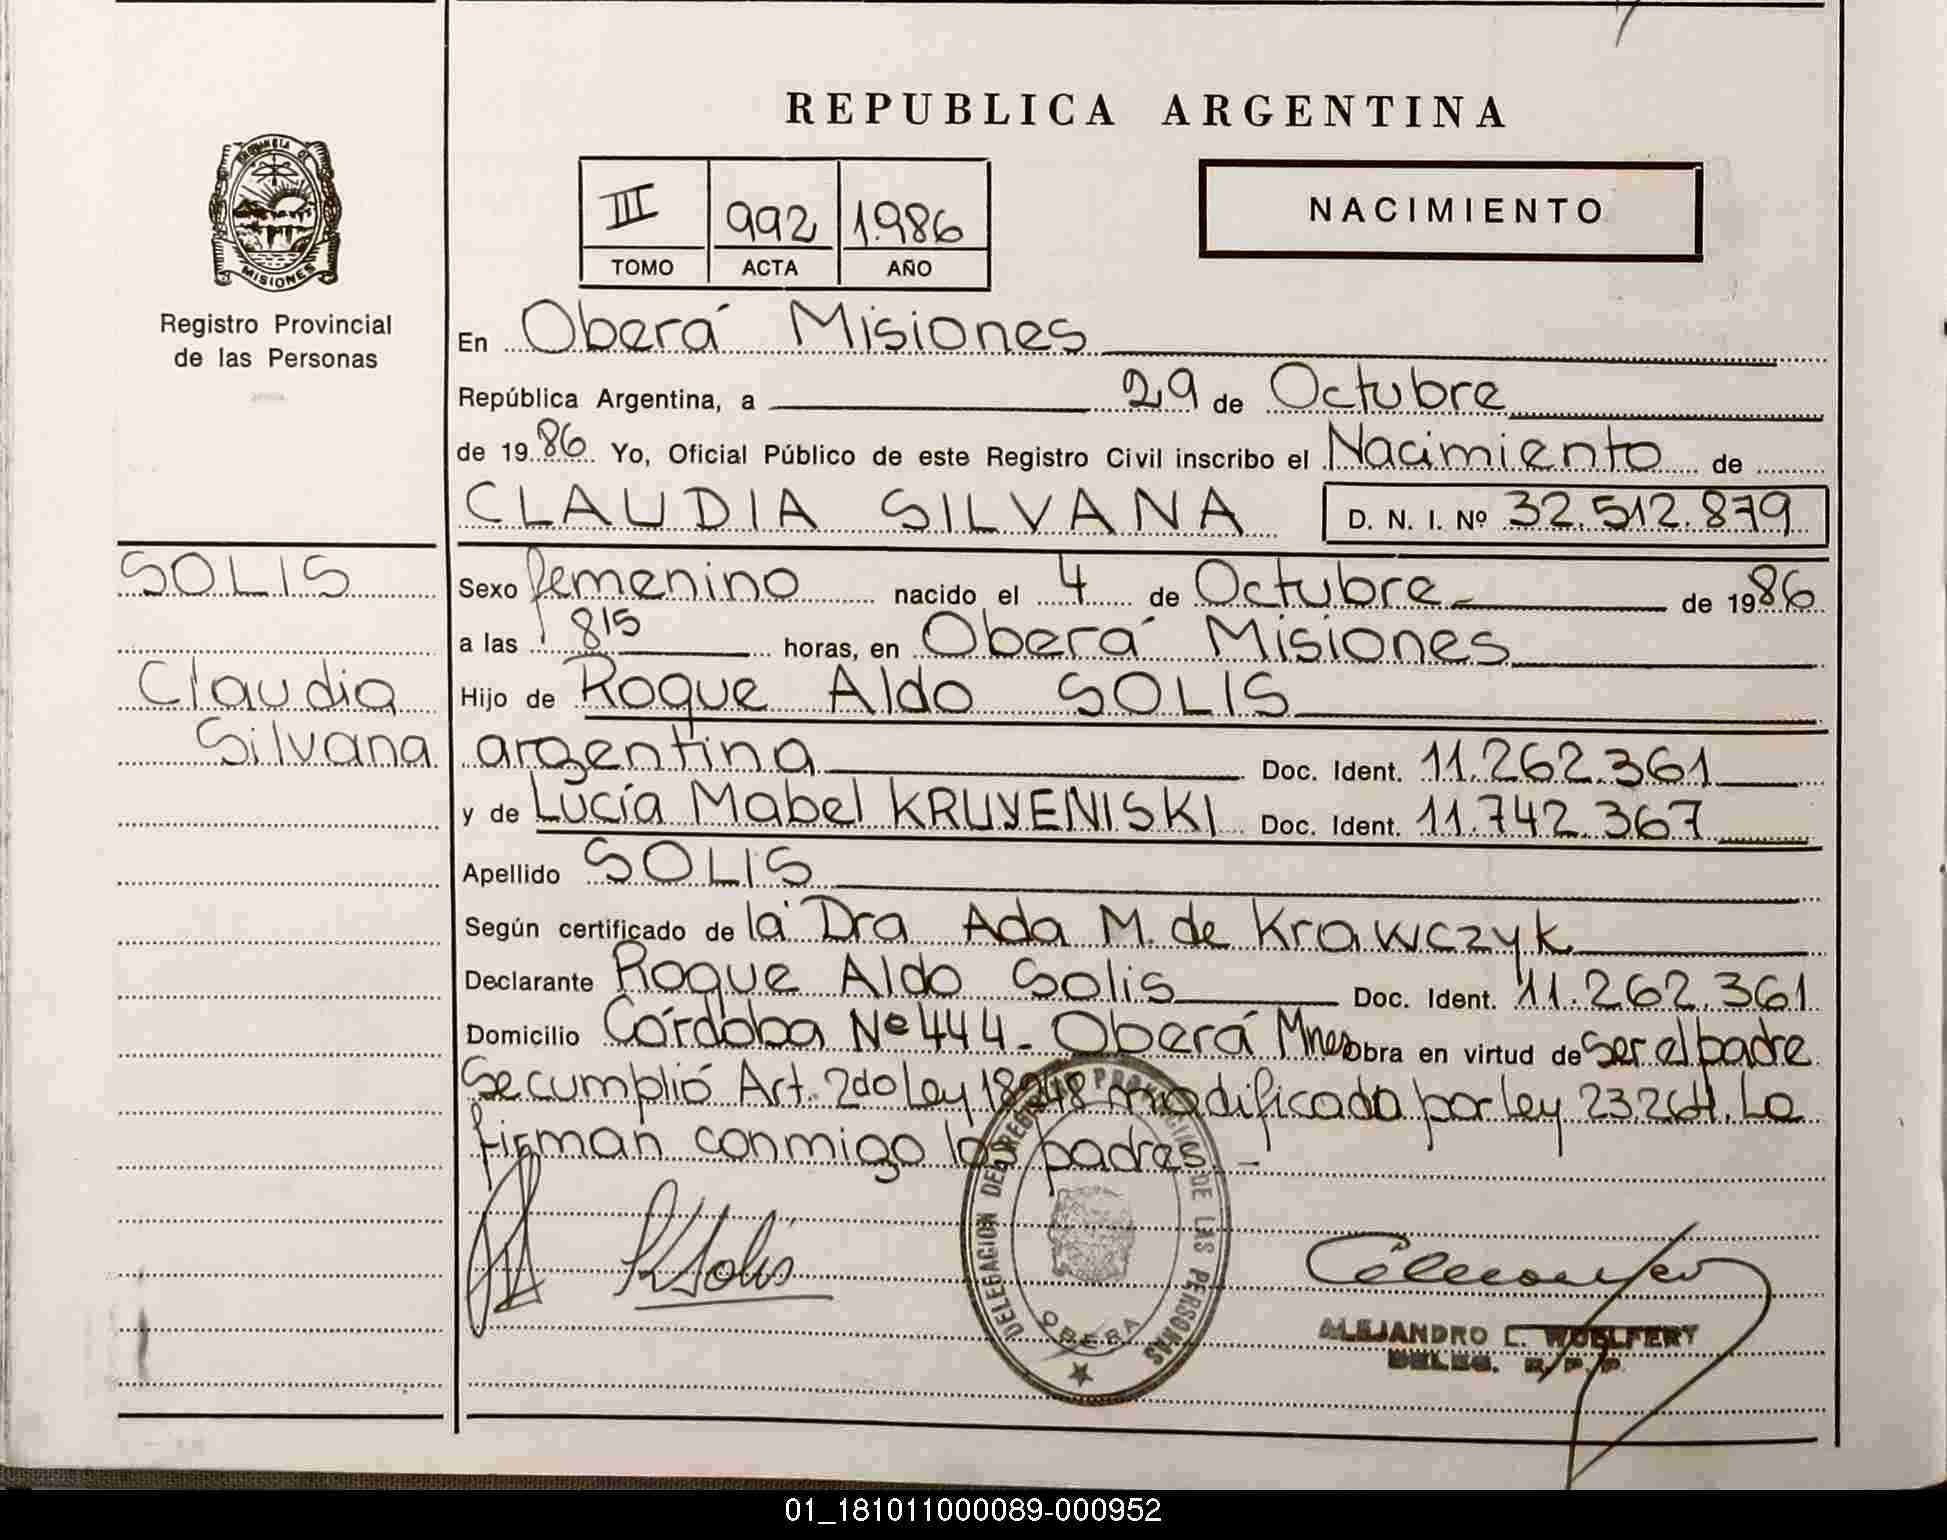 REPUBLICA ARGENTINA
PROVINCIA DE
MISIONES
III 992 1.986
TOMO ACTA AÑO
NACIMIENTO
Registro Provincial
de las Personas
En Oberá Misiones
República Argentina, a 29 de Octubre
de 1986 Yo, Oficial Público de este Registro Civil inscribo el Nacimiento de
CLAUDIA SILVANA D. N. I. Nº 32.512.879
SOLIS
Claudia
Silvana
Sexo femenino nacido el 4 de Octubre de 1986
a las 815 horas, en Oberá Misiones
Hijo de Roque Aldo SOLIS
argentina Doc. Ident. 11.262.361
y de Lucía Mabel KRUYENISKI Doc. Ident. 11.742.367
Apellido SOLIS
Según certificado de la Dra Ada M. de Krawczyk
Declarante Roque Aldo Solis Doc. Ident. 11.262.361
Domicilio Córdoba Nº 444 - Oberá Mnes obra en virtud de ser el padre
Se cumplió Art. 2do Ley 18248 modificada por ley 23264. La
firman conmigo los padres. -
RSolis
DELEGACION DEL REGISTRO PROVINCIAL DE LAS PERSONAS
OBERA
ALEJANDRO C. WOELFERT
DELEG. R. P. P.
01_181011000089-000952